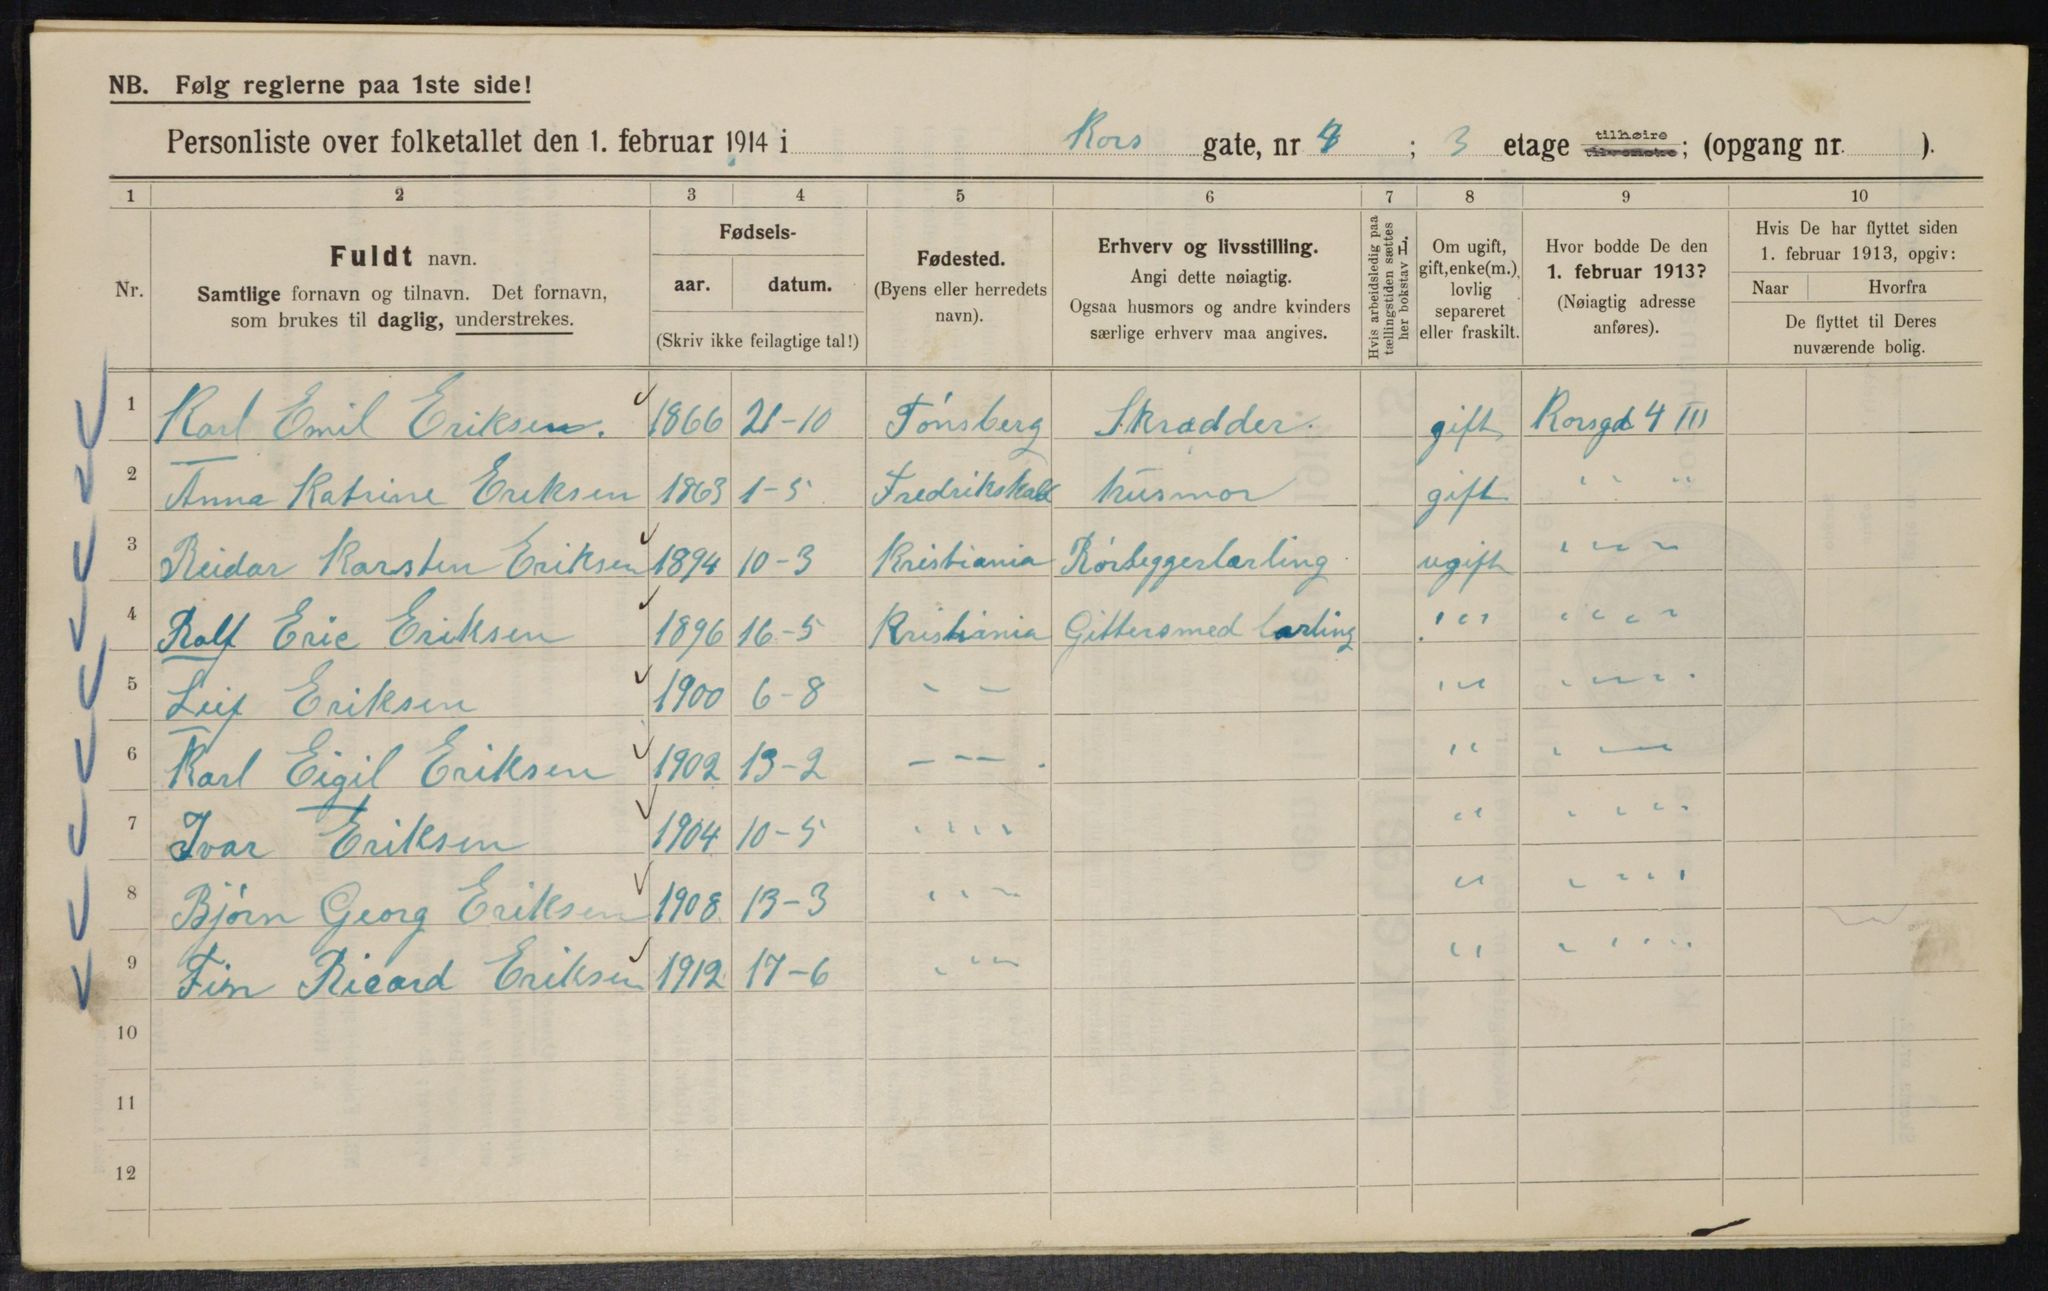 NB. Følg reglerne paa 1ste side!
Personliste over folketallet den 1. februar 1914 i Kors gate, nr 4 ; 3 etage tilhøire ; (opgang nr. ).
1 2 3 4 5 6 7 8 9 10
Nr.
Fuldt navn.
Samtlige fornavn og tilnavn. Det fornavn,
som brukes til daglig, understrekes.
Fødsels-
aar. datum.
(Skriv ikke feilagtige tal!)
Fødested.
(Byens eller herredets
navn).
Erhverv og livsstilling.
Angi dette nøiagtig.
Ogsaa husmors og andre kvinders
særlige erhverv maa angives.
Hvis arbeidsledig paa
tællingstiden sættes
her bokstav L.
Om ugift,
gift, enke(m.),
lovlig
separeret
eller fraskilt.
Hvor bodde De den
1. februar 1913?
(Nøiagtig adresse
anføres).
Hvis De har flyttet siden
1. februar 1913, opgiv:
Naar Hvorfra
De flyttet til Deres
nuværende bolig.
1 Karl Emil Eriksen. 1866 21-10 Tønsberg Skrædder. gift Korsgd 4 III
2 Anna Katrine Eriksen 1863 1-5 Fredrikshald husmor gift " " "
3 Reidar Karsten Eriksen 1894 10-3 Kristiania Rørleggerlærling ugift " " " "
4 Rolf Eric Eriksen 1896 16-5 Kristiania Gittersmed lærling " " " " " " "
5 Leif Eriksen 1900 6-8 - - " " " " " " "
6 Karl Eigil Eriksen 1902 13-2 - - - " " " -
7 Ivar Eriksen 1904 10-5 " " " " " " " " " "
8 Bjørn Georg Eriksen 1908 13-3 " " " " " " " " " "
9 Finn Ricard Eriksen 1912 17-6 " " " " " " " " " "
10
11
12